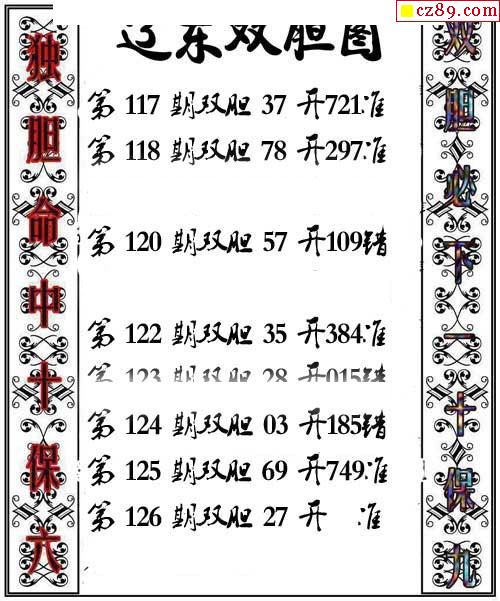 cz89.com
辽东双胆图
独胆命中十保六
第 117 期双胆 37 开721准
第 118 期双胆 78 开297准
第 120 期双胆 57 开109错
第 122 期双胆 35 开384准
第 123 期双胆 28 开015错
第 124 期双胆 03 开185错
第 125 期双胆 69 开749准
第 126 期双胆 27 开 准
双胆必下一十保九